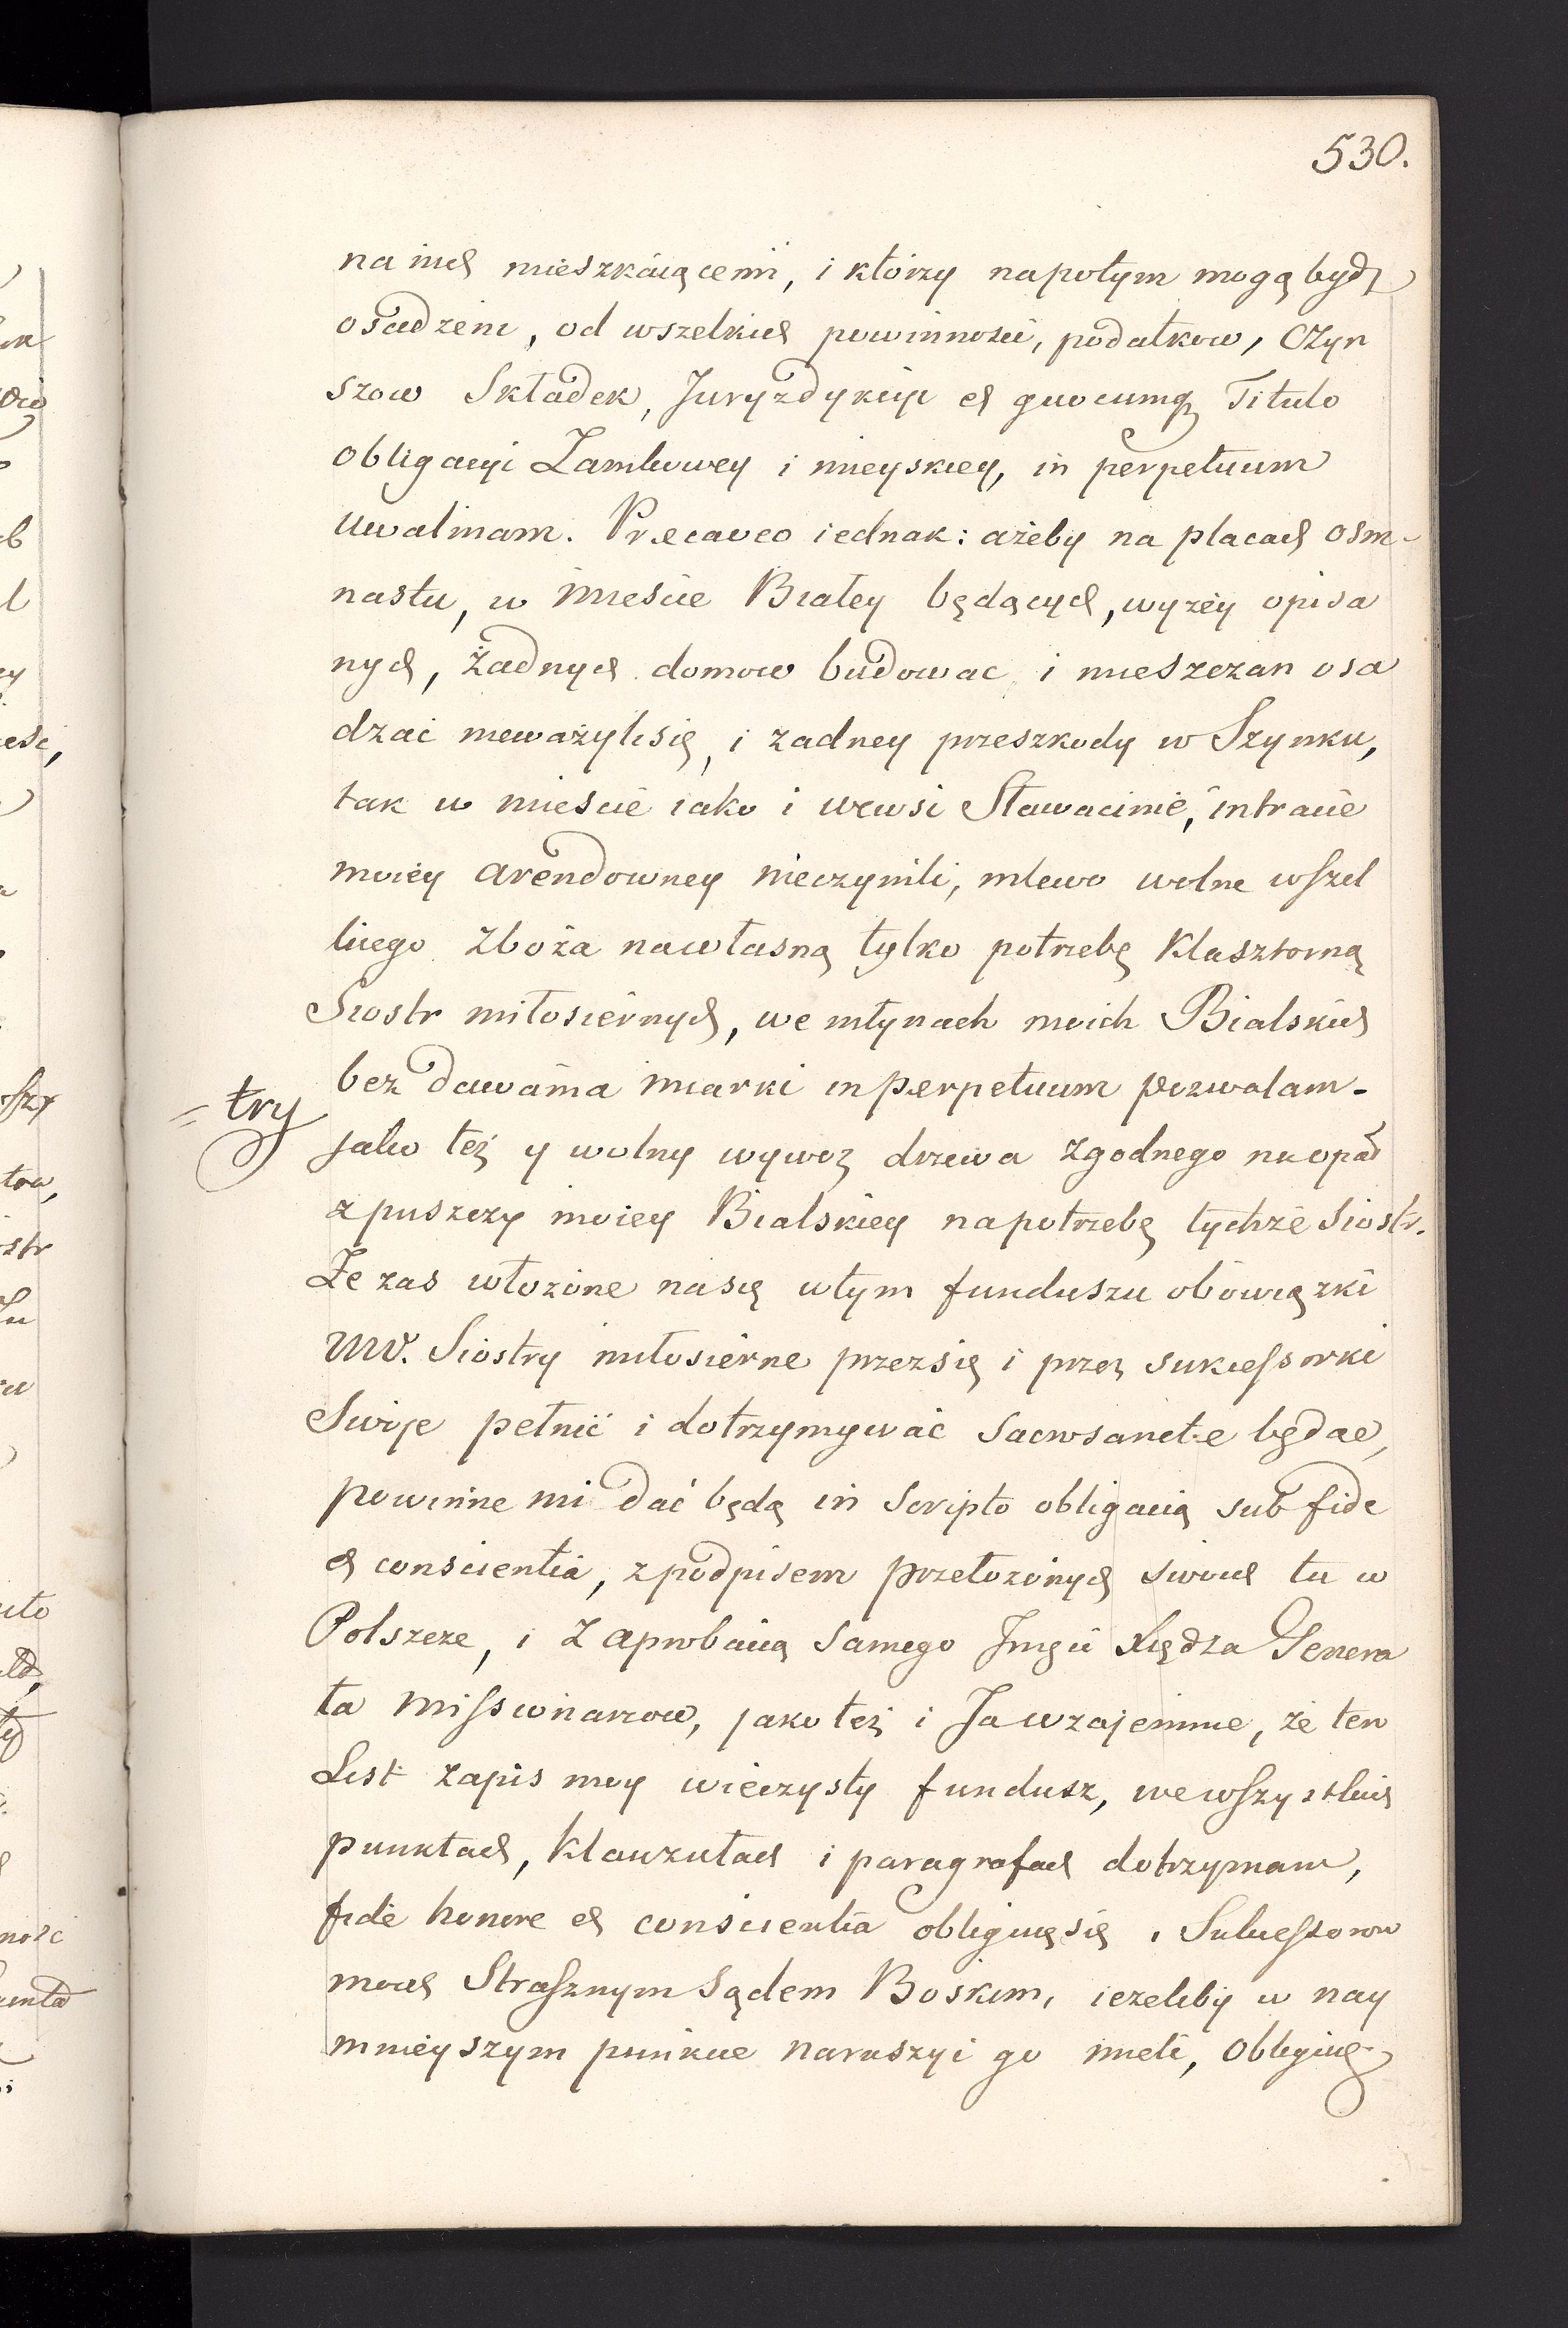 530.
na nich mieszkaiącemi, i którzy napotym mogą bydź
osadzeni, od wszelkich powinnosci, podatkow, czyn
szow Składek, Juryzdykcyi et quocumq Titulo
obligacyi Zamkowey i mieyskiey, in perpetuum
uwalniam. Præcaveo iednak: ażeby na placach osm-
nastu, w mieście Białey będących, wyżey opisa
nych, żadnych domow budowac i mieszczan osa
dzać nieważyli się, i zadney przeszkody w Szynku,
tak w mieście iako i wewsi Sławacinie, intracie
moiey arendowney nieczynili, mlewo wolne wszel
kiego zboża nawłasną tylko potrzebę Klasztorną
Siostr miłosiernych, we młynach moich Bialskich
bez dawania miarki in perpetuum pozwalam.
= try
jako też y wolny wywoz drzewa zgodnego na opał
z puszczy moiey Bialskiey na potrzebę tychże Siostr.
Że zas włożone na się w tym funduszu obowiązki
WW. Siostry miłosierne przez się i przez sukcessorki
Swoje pełnić i dotrzymywać sacrosancte będąc,
powinne mi dać będą in scripto obligacią sub fide
et conscientia, z podpisem przełożonych swoich tu w
Polszcze, i z aprobacią samego Jmści Xiędza Genera
ła missionarzow, jako też i Ja wzajemnie, że ten
List zapis moy wieczysty fundusz, we wszystkich
punktach, klauzułach i paragrafach dotrzymam,
fide honore et conscientia obliguię się i Sukcessorow
moich Strasznym Sądem Boskim, ieżeliby w nay
mnieyszym punkcie naruszyć go mieli, obliguię